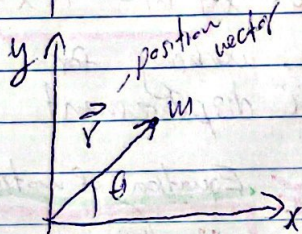 y
position vector
r
m
θ
x